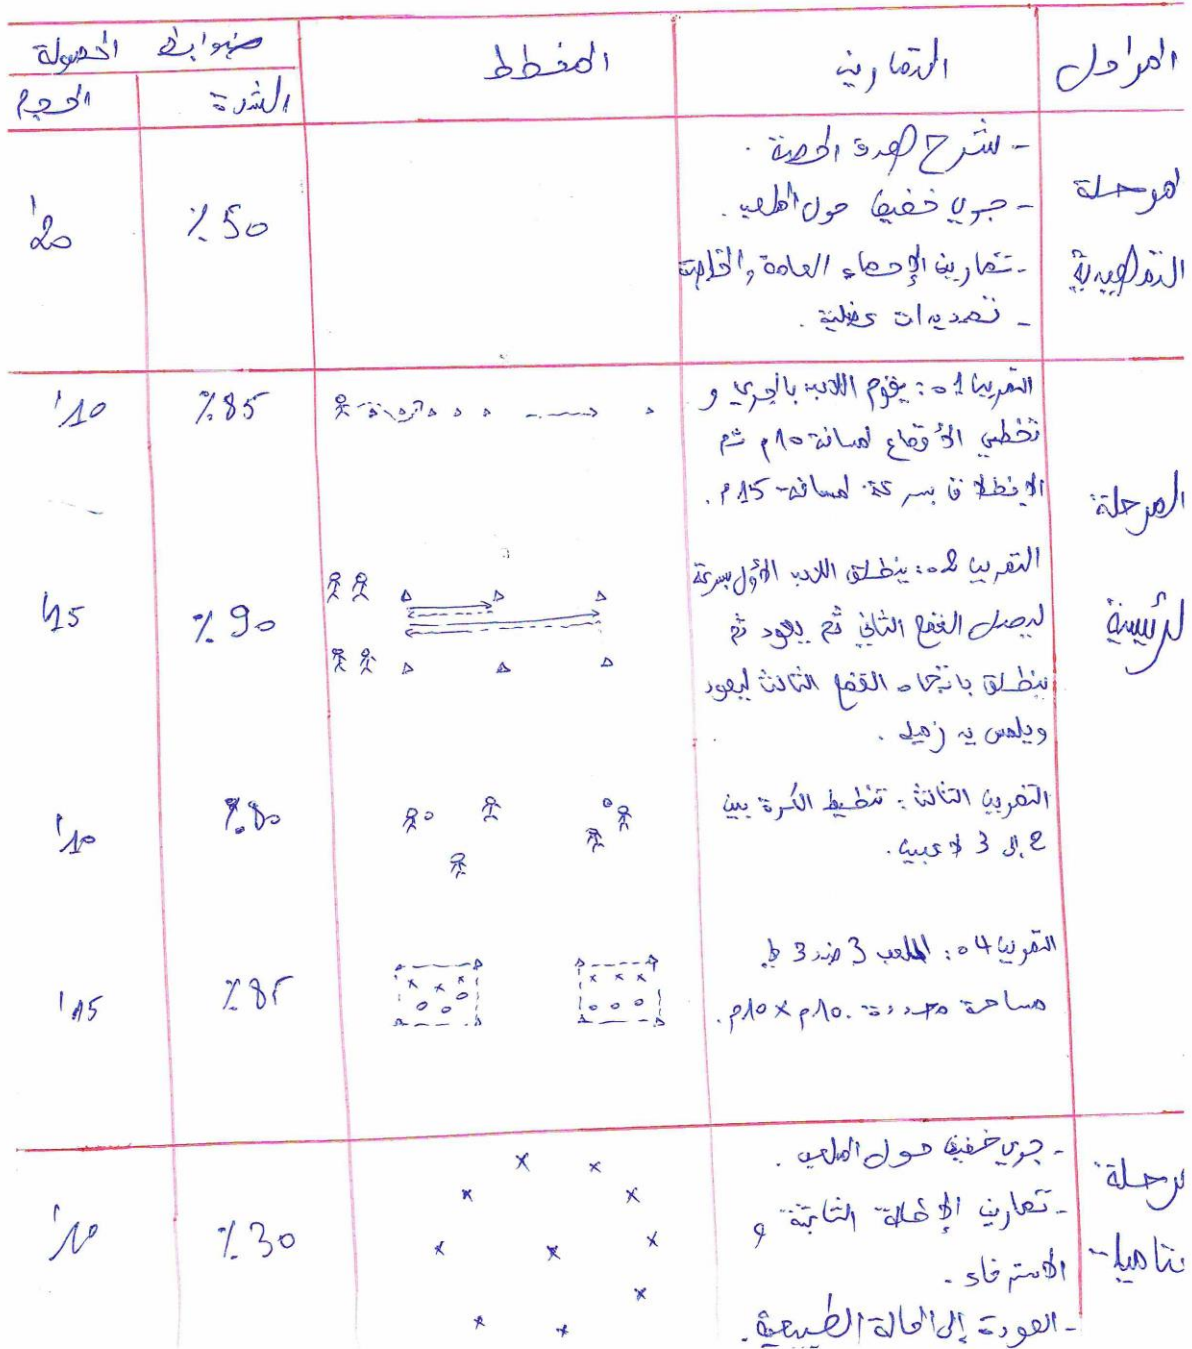 المراحل التمارين المخطط ضوابط الحمولة
الشدة الحجم
المرحلة التمهيدية
- شرح هدف الحصة.
- جري خفيف حول الملعب.
- تمارين الإحماء العامة والخاصة
- تمديدات عضلية.
50٪
20'
المرحلة الرئيسية
التمرين 01: يقوم اللاعب بالجري و
تخطي الأقماع لمسافة 10م ثم
الانطلاق بسرعة لمسافة 15م.
85٪
10'
التمرين 02: ينطلق اللاعب الأول بسرعة
ليصل القمع الثاني ثم يعود ثم
ينطلق باتجاه القمع الثالث ليعود
ويلمس يد زميله.
90٪
15'
التمرين الثالث: تنطيط الكرة بين
2 إلى 3 لاعبين.
80٪
10'
التمرين 04: الملعب 3 ضد 3 في
مساحة محددة 10م × 10م.
85٪
15'
مرحلة
- جري خفيف حول الملعب.
- تمارين الإطالة الثابتة و
الاسترخاء.
- العودة إلى الحالة الطبيعية.
30٪
10'